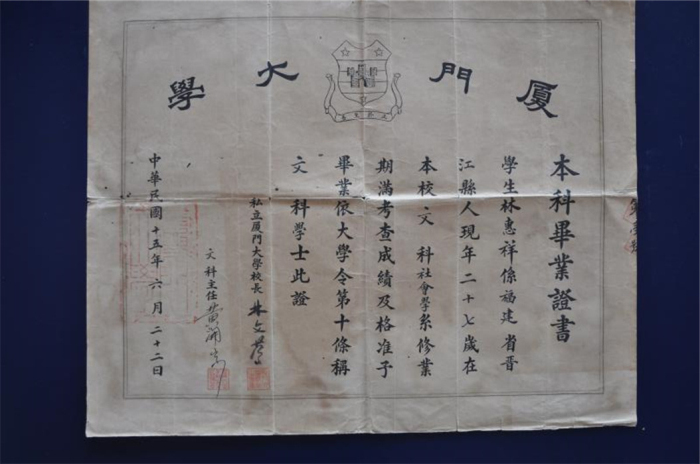 厦門大學
本科畢業證書
學生林惠祥係福建省晉
江縣人現年二十七歲在
本校文科社會學系修業
期滿考查成績及格准予
畢業依大學令第十條稱
文科學士此證
私立厦門大學校長 林文慶
文科主任
中華民國十五年六月二十二日